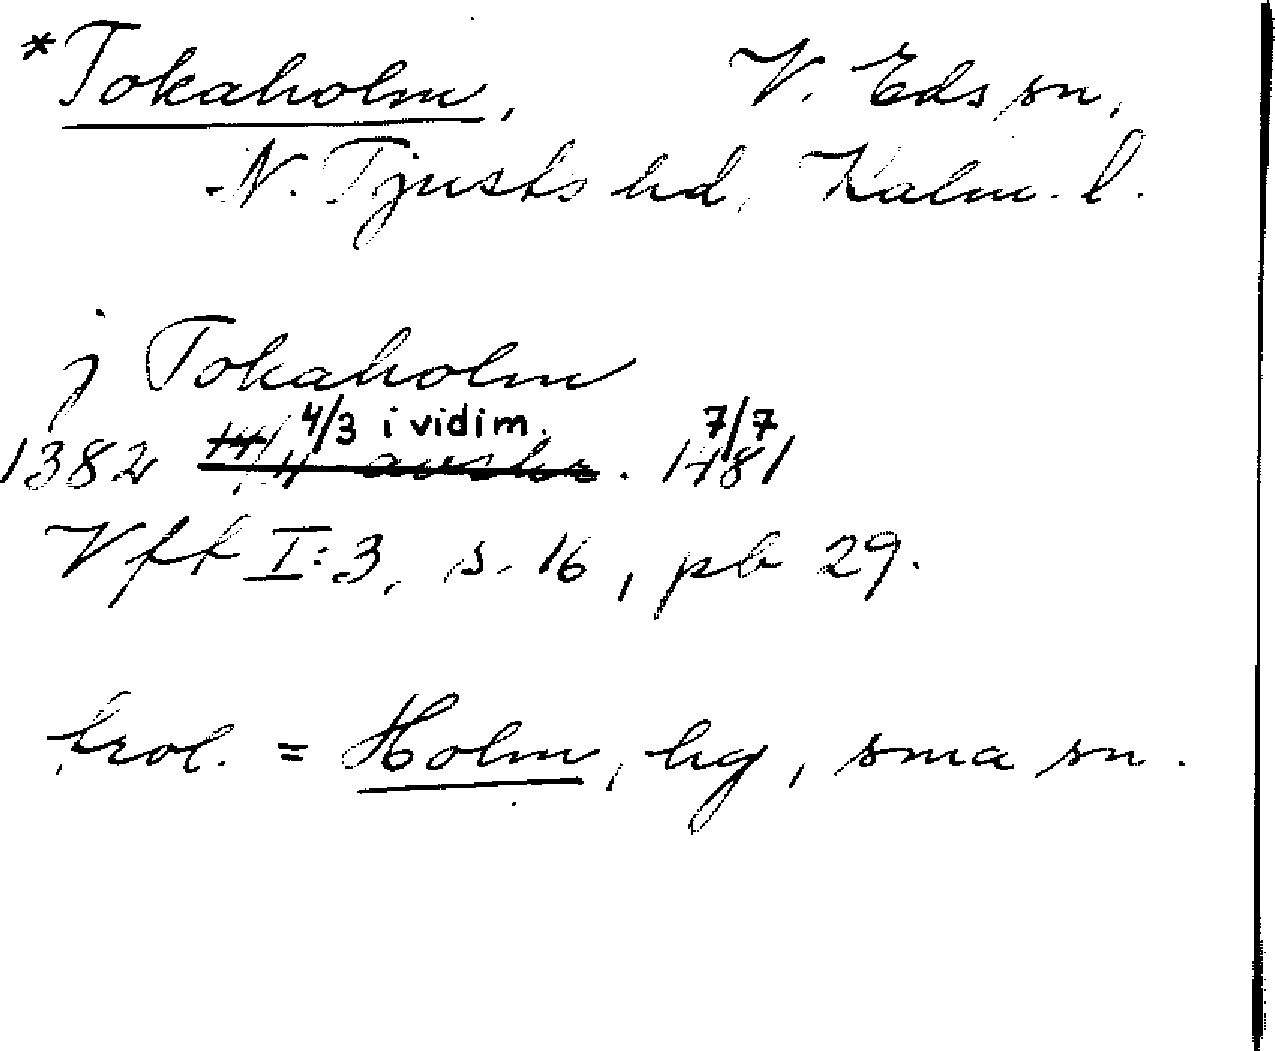 *Tokaholm, V. Eds sn,
N. Tjusts hd, Kalm. l.
j Tokaholm
4/3 i vidim. 7/7
1382 14/11 avskr. 1481
Vft I:3, s. 16, pb 29.
trol. = Holm, hg, sma sn.